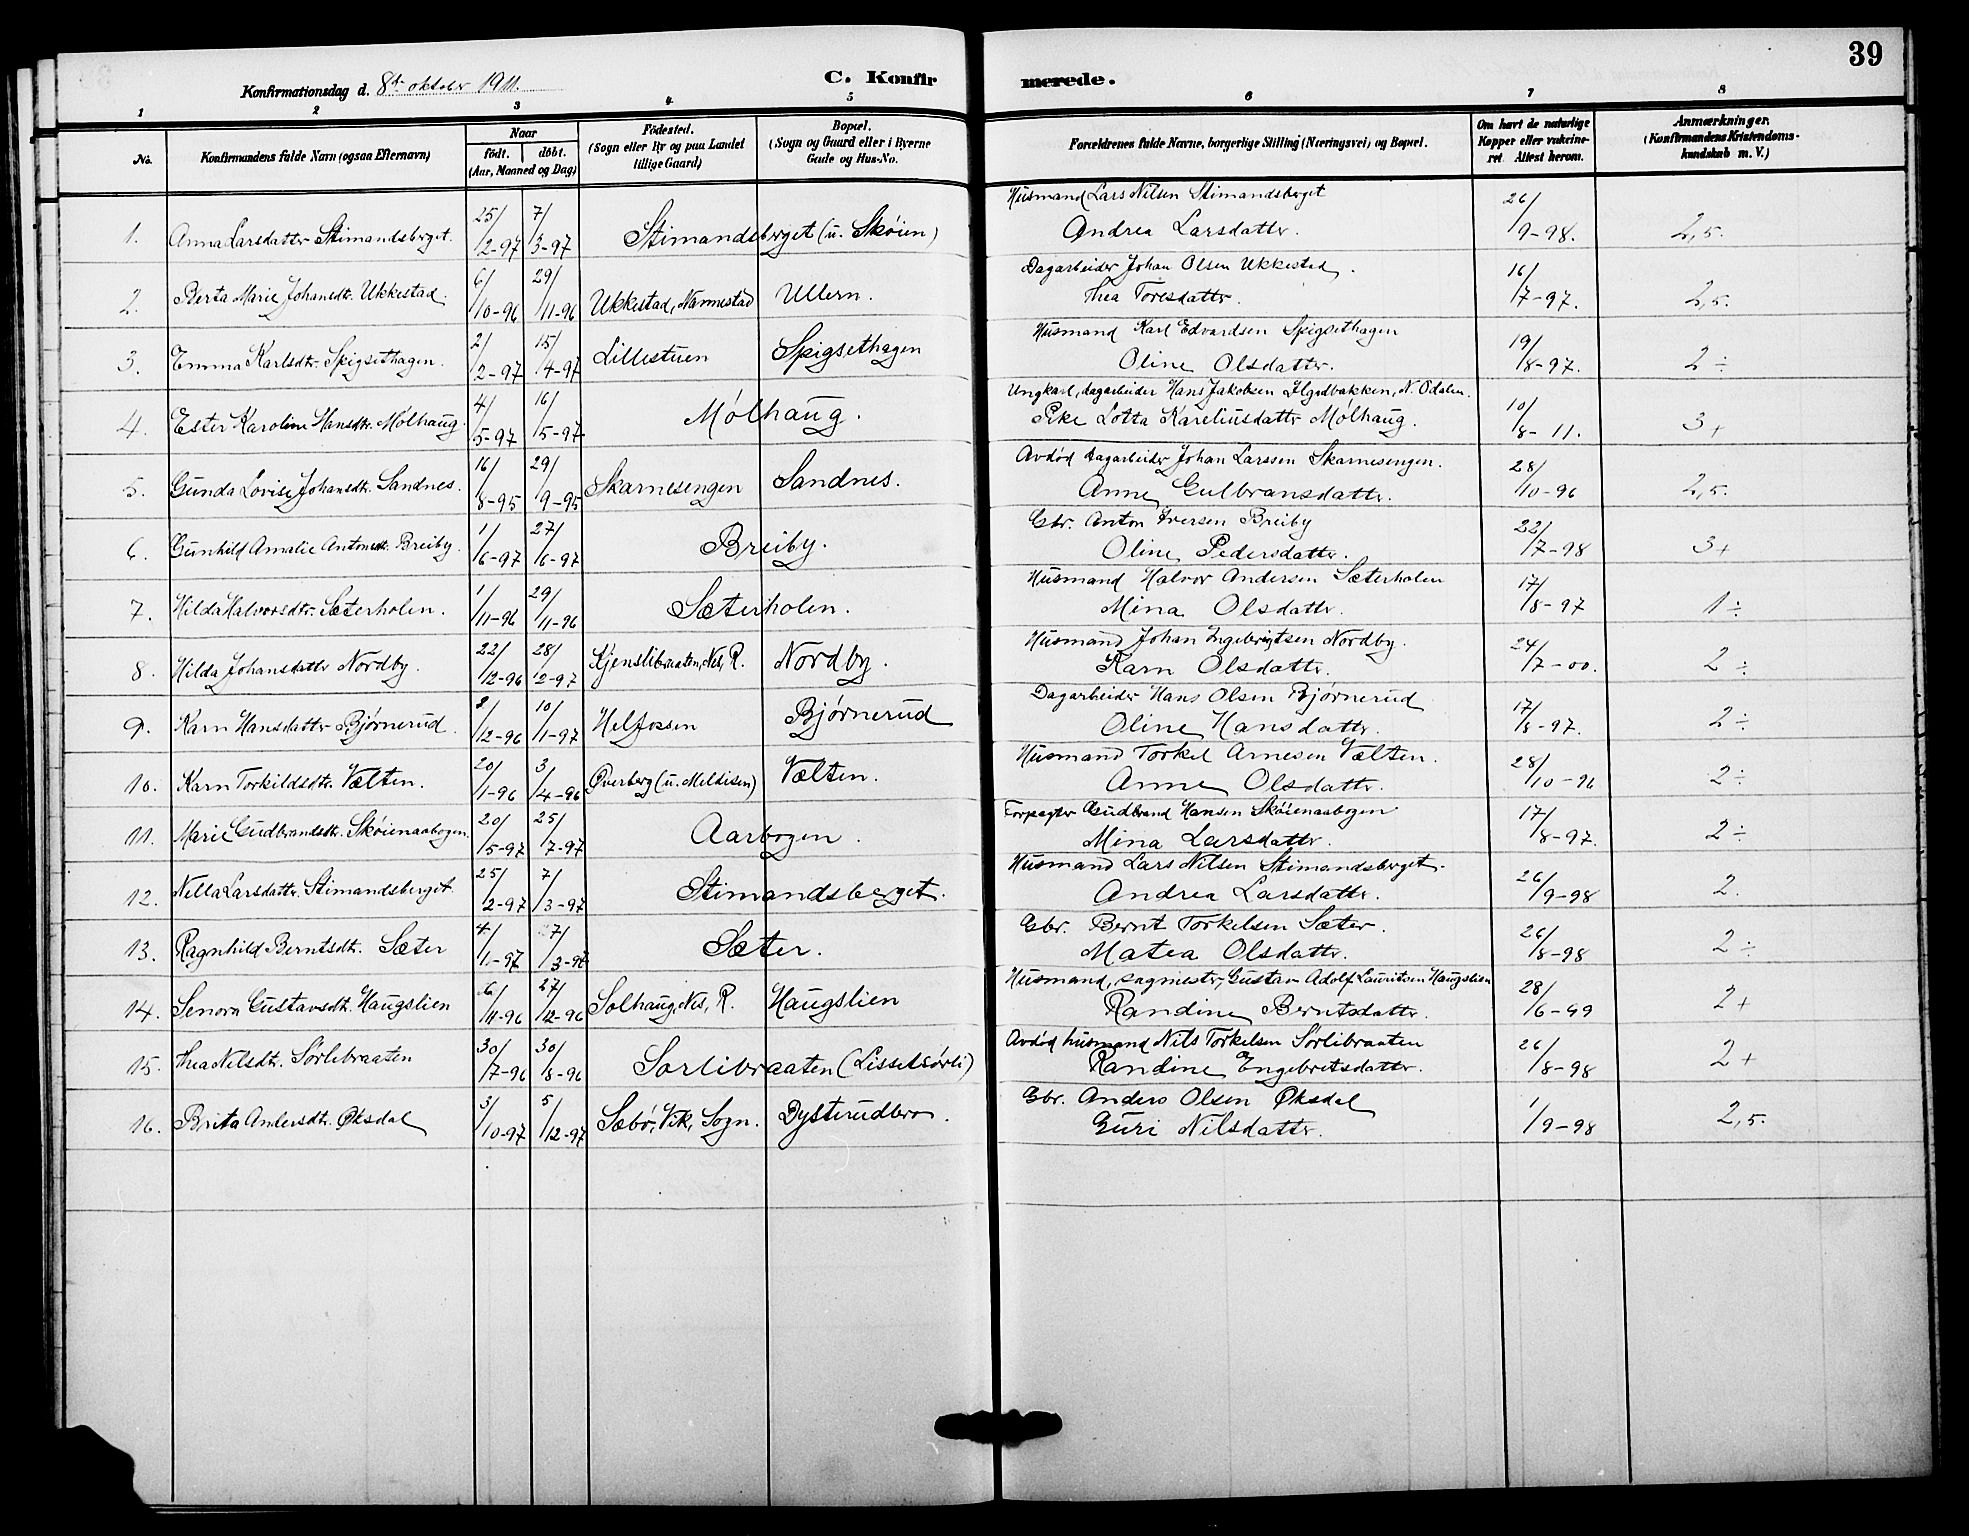 39
Konfirmationsdag d. 8de oktober 1911.
C. Konfirmerede.
1 2 3 4 5 6 7 8
No. Konfirmandens fulde Navn (ogsaa Efternavn) Naar født. døbt. (Aar, Maaned og Dag) Fødested. (Sogn eller By og paa Landet tillige Gaard) Bopæl. (Sogn og Gaard eller i Byerne Gade og Hus-No. Forældrenes fulde Navne, borgerlige Stilling (Næringsvei) og Bopæl. Om havt de naturlige Kopper eller vakcineret. Attest herom. Anmærkninger. (Konfirmandens Kristendomskundskab m. V.)
1. Anna Larsdatter Stimandsberget. 25/2-97 7/3-97 Stimandsberget (u. Skøien) Husmand Lars Nilsen Stimandsberget 26/9-98. 2,5.
Andrea Larsdatter.
2. Berta Marie Johansdtr. Ukkestad. 6/10-96 29/11-96 Ukkestad, Nannestad Ullern. Dagarbeider Johan Olsen Ukkestad. 16/7-97. 2,5.
Thea Toresdatter.
3. Emma Karlsdtr. Spigsethagen. 2/2-97 15/4-97 Lillestuen Spigsethagen Husmand Karl Edvardsen Spigsethagen 19/8-97. 2÷
Oline Olsdatter.
4. Ester Karoline Hansdtr. Mølhaug. 4/5-97 16/5-97 Mølhaug. Ungkarl, dagarbeider Hans Jakobsen N. Odalen. 10/8-11. 3+
Pike Lotta Kareliusdatter Mølhaug.
5. Gunda Lovise Johansdtr. Sandnes. 16/8-95 29/9-95 Skarnesengen Sandnes. Avdød dagarbeider Johan Larssen Skarnesengen. 28/10-96 2,5.
Anne Gulbransdatter.
6. Gunhild Amalie Antonsdtr. Breiby. 1/6-97 27/6-97 Breiby. Gbr. Anton Iversen Breiby 22/7-98 3+
Oline Pedersdatter.
7. Hilda Halvorsdtr. Sæterholen. 1/11-96 29/11-96 Sæterholen. Husmand Halvor Andersen Sæterholen 17/8-97 1÷
Mina Olsdatter.
8. Hilda Johansdatter Nordby. 22/12-96 28/2-97 Kjenslibraaten, Nes, R. Nordby. Husmand Johan Ingebrigtsen Nordby. 24/7-00. 2÷
Karn Olsdatter.
9. Karn Hansdatter Bjørnerud. 8/12-96 10/1-97 Helfossen Bjørnerud Dagarbeider Hans Olsen Bjørnerud 17/8-97. 2÷
Oline Hansdatter.
10. Karn Torkildsdtr. Vælten. 20/1-96 3/4-96 Øverberg (u. Meldisen) Vælten. Husmand Torkel Arnesen Vælten. 28/10-96 2÷
Anne Olsdatter.
11. Marie Gudbrandsdtr. Skøienaabogen. 20/5-97 25/7-97 Aarbogen. Forpagter Gudbrand Hansen Skøienaabogen 17/8-97. 2÷
Mina Larsdatter.
12. Nella Larsdatter. Stimandsberget 25/2-97 7/3-97 Stimandsberget. Husmand Lars Nilsen Stimandsberget. 26/9-98 2.
Andrea Larsdatter.
13. Ragnhild Berntsdtr. Sæter 4/1-97 7/3-97 Sæter. Gbr. Bernt Torkelsen Sæter. 26/8-98 2÷
Matea Olsdatter.
14. Senora Gustavsdtr. Haugslien 6/11-96 27/12-96 Solhaug, Nes, R. Haugslien Husmand, sagmester Gustav Adolf Lauritsen Haugslien 28/6-99 2+
Randine Berntsdatter.
15. Thea Nilsdtr. Sørlibraaten 30/7-96 30/8-96 Sørlibraaten (Lisselsørli) Avdød husmand Nils Torkelsen Sørlibraaten 26/8-98 2+
Randine Engebretsdatter.
16. Brita Andersdtr. Øksdal 3/10-97 5/12-97 Sæbø, Vik, Sogn. Dysterudbro. Gbr. Anders Olsen Øksdal 1/9-98 2,5.
Guri Nilsdatter.